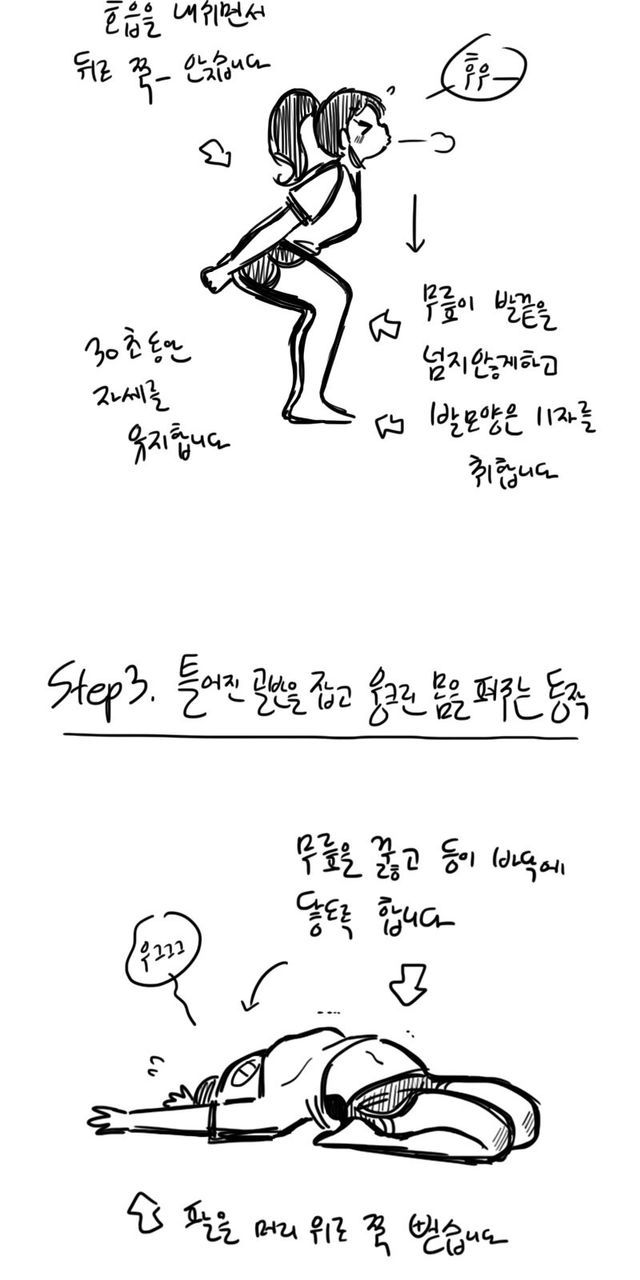 호흡을 내쉬면서
뒤로 쭉- 앉습니다
후우-
무릎이 발끝을
넘지않게하고
발모양은 11자를
취합니다
30초동안
자세를
유지합니다
Step3. 틀어진 골반을 잡고 웅크린 몸을 펴주는 동작
무릎을 꿇고 등이 바닥에
닿도록 합니다
우그그그
팔을 머리 위로 쭉 뻗습니다